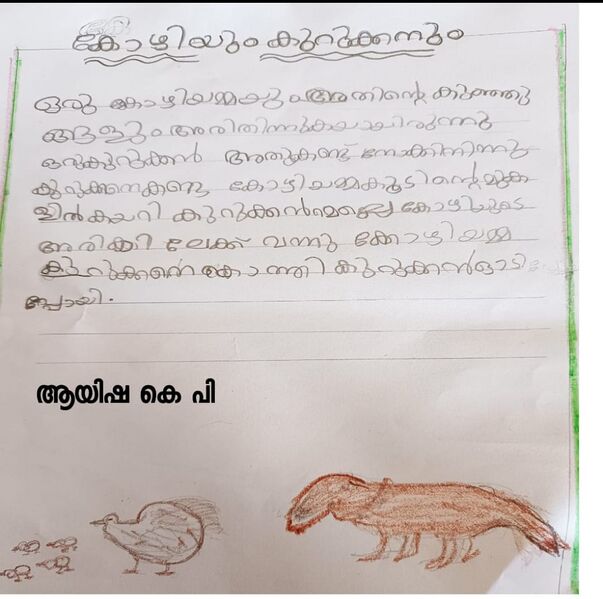 കോഴിയും കുറുക്കനും
ഒരു കോഴിയമ്മയും അതിന്റെ കുഞ്ഞു
ങ്ങളും അരിതിന്നുകയായിരുന്നു
ഒരുകുറുക്കൻ അതുകണ്ട് നോക്കിനിന്നു
കുറുക്കനെകണ്ടു കോഴിയമ്മകൂടിന്റെമുക
ളിൽ കയറി കുറുക്കൻമെല്ലെ കോഴിയുടെ
അരികി ലേക്ക് വന്നു കോഴിയമ്മ
കുറുക്കനെ കൊത്തി കുറുക്കൻഓടി
പ്പോയി.
ആയിഷ കെ പി